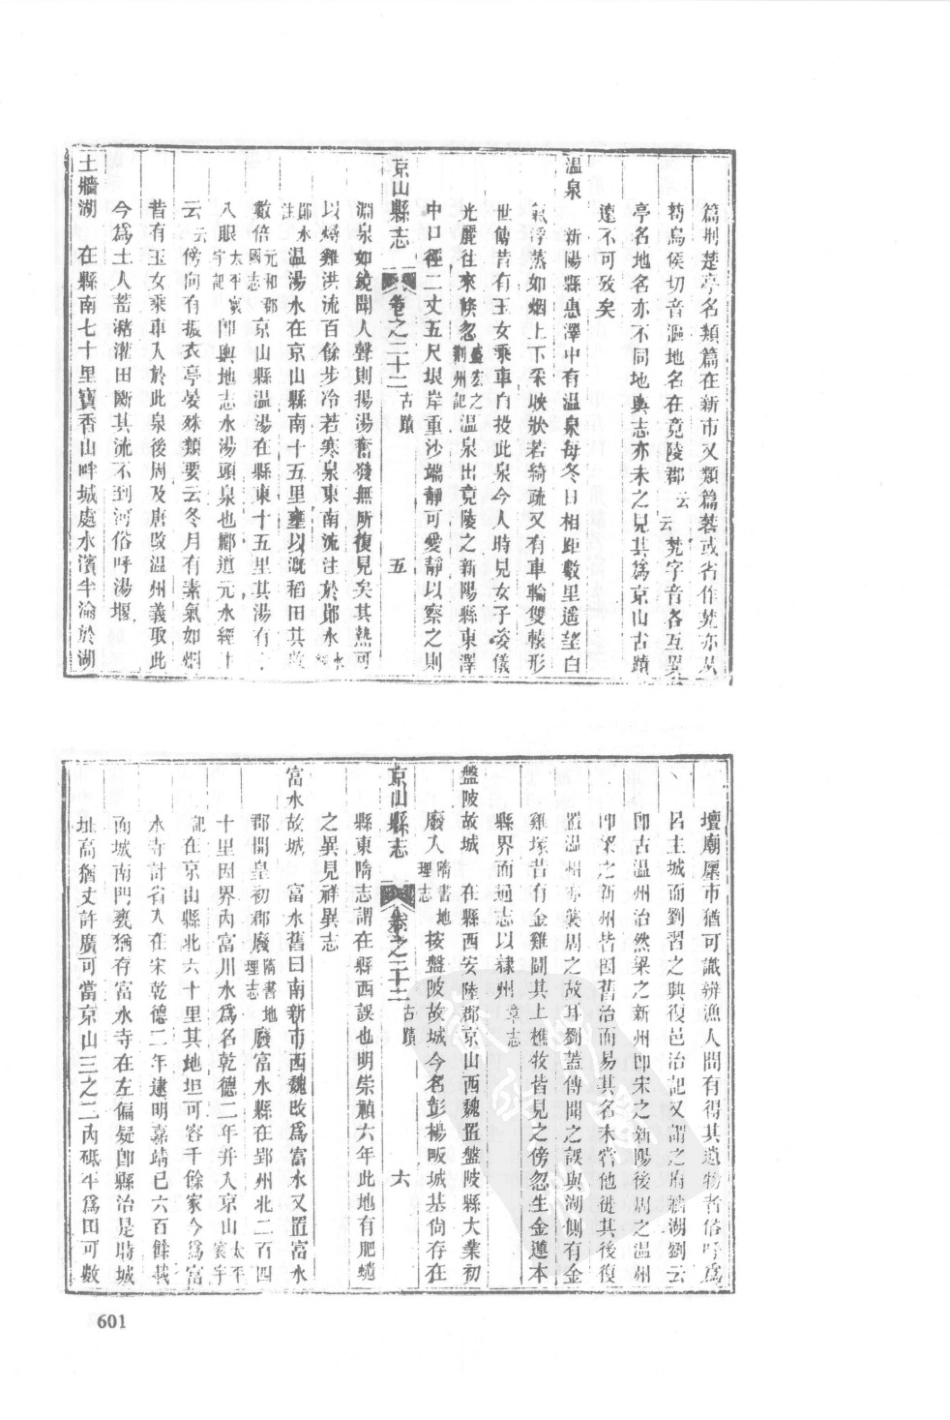 篇荆楚亭名類篇在新市又類篇蒆或省作茿亦从
荀烏侯切音漚地名在竟陵郡云云茿字音各互異
亭名地名亦不同地輿志亦未之見其爲京山古蹟
遠不可攷矣
溫泉　新陽縣惠澤中有溫泉每冬日相距數里遥望白
氣浮蒸如烟上下采映狀若綺疏又有車輪雙轅形
世傳昔有玉女乘車自投此泉今人時見女子姿儀
光麗往來倏忽盛宏之荆州記溫泉出竟陵之新陽縣東澤
中口徑二丈五尺垠岸重沙端靜可愛靜以察之則
京山縣志　卷之二十二　古蹟　五
淵泉如鏡聞人聲則揚湯奮發無所復見矣其熱可
以燖雞洪流百餘步冷若寒泉東南流注於鄖水水
注鄖水溫湯水在京山縣南十五里壅以溉稻田其收
數倍元和郡國志京山縣溫湯在縣東十五里其湯有
入眼太平寰宇記卽輿地志水湯頭泉也酈道元水經
云云傍向有振衣亭晏殊類要云冬月有素氣如烟
昔有玉女乘車入於此泉後周及唐改溫州義取此
今爲土人蓄瀦灌田斷其流不到河俗呼湯堰
土牆湖　在縣南七十里寶香山畔城處水濱半淪於湖
壇廟廛市猶可識辨漁人間有得其遺物者俗呼爲
呂王城而劉習之興復邑治記又謂之府牆湖劉云
卽古溫州治然梁之新州卽宋之新陽後周之溫州
卽梁之新州皆因舊治而易其名未嘗他徙其後復
置溫州亦襲周之故耳劉蓋傳聞之誤與湖側有金
雞塚昔有金雞鬬其上樵牧皆見之傍忽生金蓮本
縣界而通志以隸州章志
盤陂故城　在縣西安陸郡京山西魏置盤陂縣大業初
廢入隋書地理志按盤陂故城今名彭楊畈城基尙存在
京山縣志　卷之二十二　古蹟　六
縣東隋志謂在縣西誤也明崇禎六年此地有肥𧔥
之異見祥異志
富水故城　富水舊曰南新市西魏改爲富水又置富水
郡開皇初郡廢隋書地理志廢富水縣在郢州北二百四
十里因界內富川水爲名乾德二年并入京山太平寰宇
記在京山縣北六十里其地坦可容千餘家今爲富
水寺計省入在宋乾德二年逮明嘉靖巳六百餘載
而城南門甕猶存富水寺在左偏疑卽縣治是時城
址高猶丈許廣可當京山三之二內砥平爲田可數
601